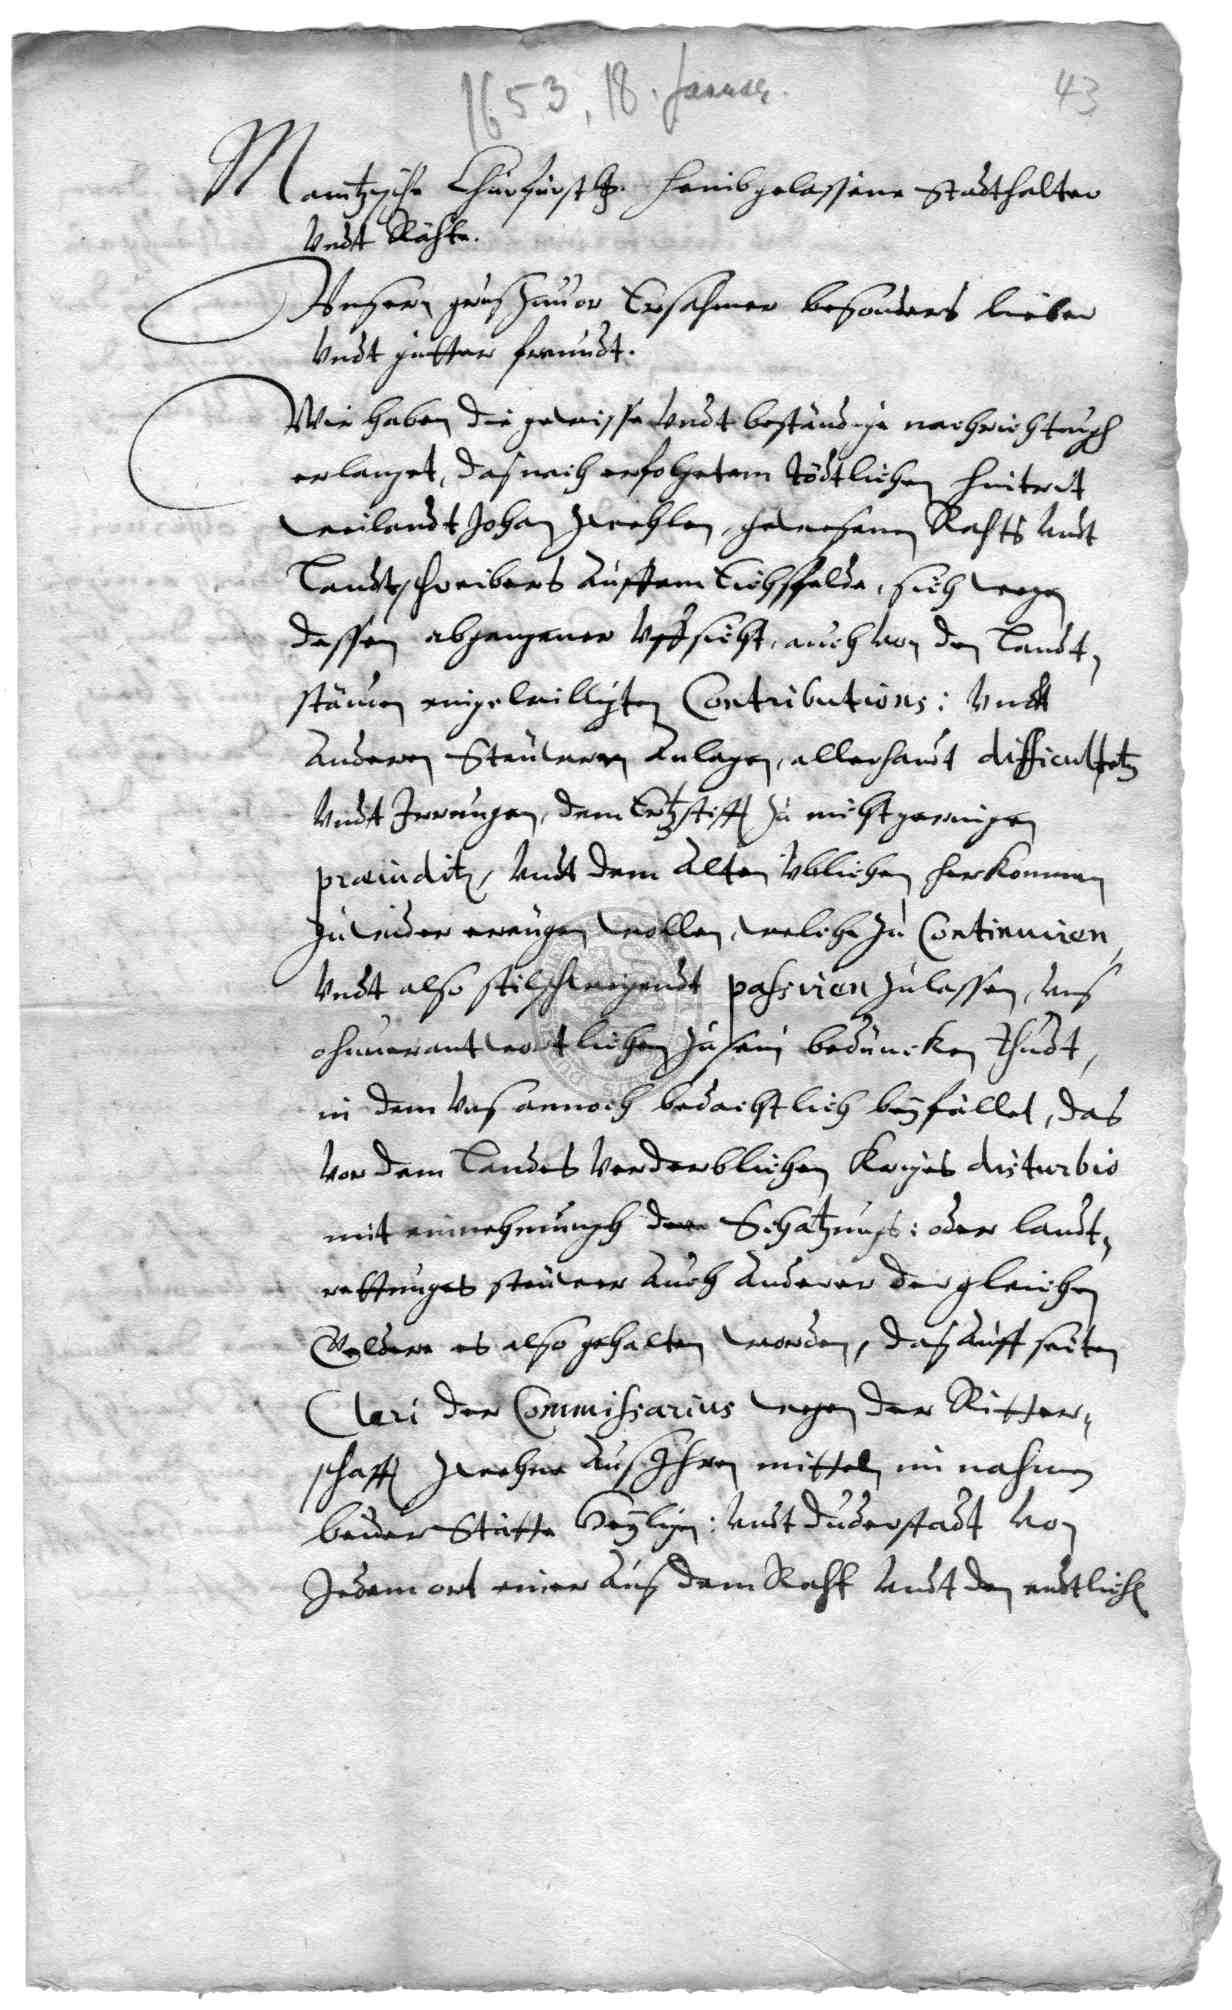 1653, 18. Januar.
43
Maintzische Churfürstl. heimbgelassene Stadthalter
Vndt Räthe.
Vnsern grus zuuor Ersahmer besonders lieber
Vndt gutter freundt.
Wir haben die gewisse Vndt beständige nachrichtungh
erlanget, das nach erfolgetem tödtlichen hintrit
weilandt Johan Zwehlen, gewesenen Rahts Vndt
Landtschreibers Auffem Eichsfelde, sich wegen
dessen abgangener Vffsicht, auch von den Landt,
ständen eingewilligten Contributions: Vndt
Anderen Steüweren Anlagen, allerhandt difficultetz
Vndt Irrungen, dem Ertzstifft zu nicht geringen
præiuditz, Vndt dem Alten Vblichen herkommen
zuwider ereugen wollen, welche zu Continuiren,
Vndt also stilschweigendt passiren zulassen, Vns
ohnuerantwortlichen zu sein bedüncken thudt,
in dem Vns annoch bedachtlich beyfället, das
Vor dem Landes Verderblichen Kriges disturbio
mit einnehmungh der Schatzungs: oder landt,
rettunges steüwer Auch Anderer dergleichen
Geldere es also gehalten worden, das Auff seiten
Cleri der Commissarius wegen der Ritter,
schafft Zwehne Aus Ihren mitteln im nahmen
beider Stätte Heylig: Vndt Duderstadt von
Jedem ort einer Aus dem Raht Vndt den endtlich